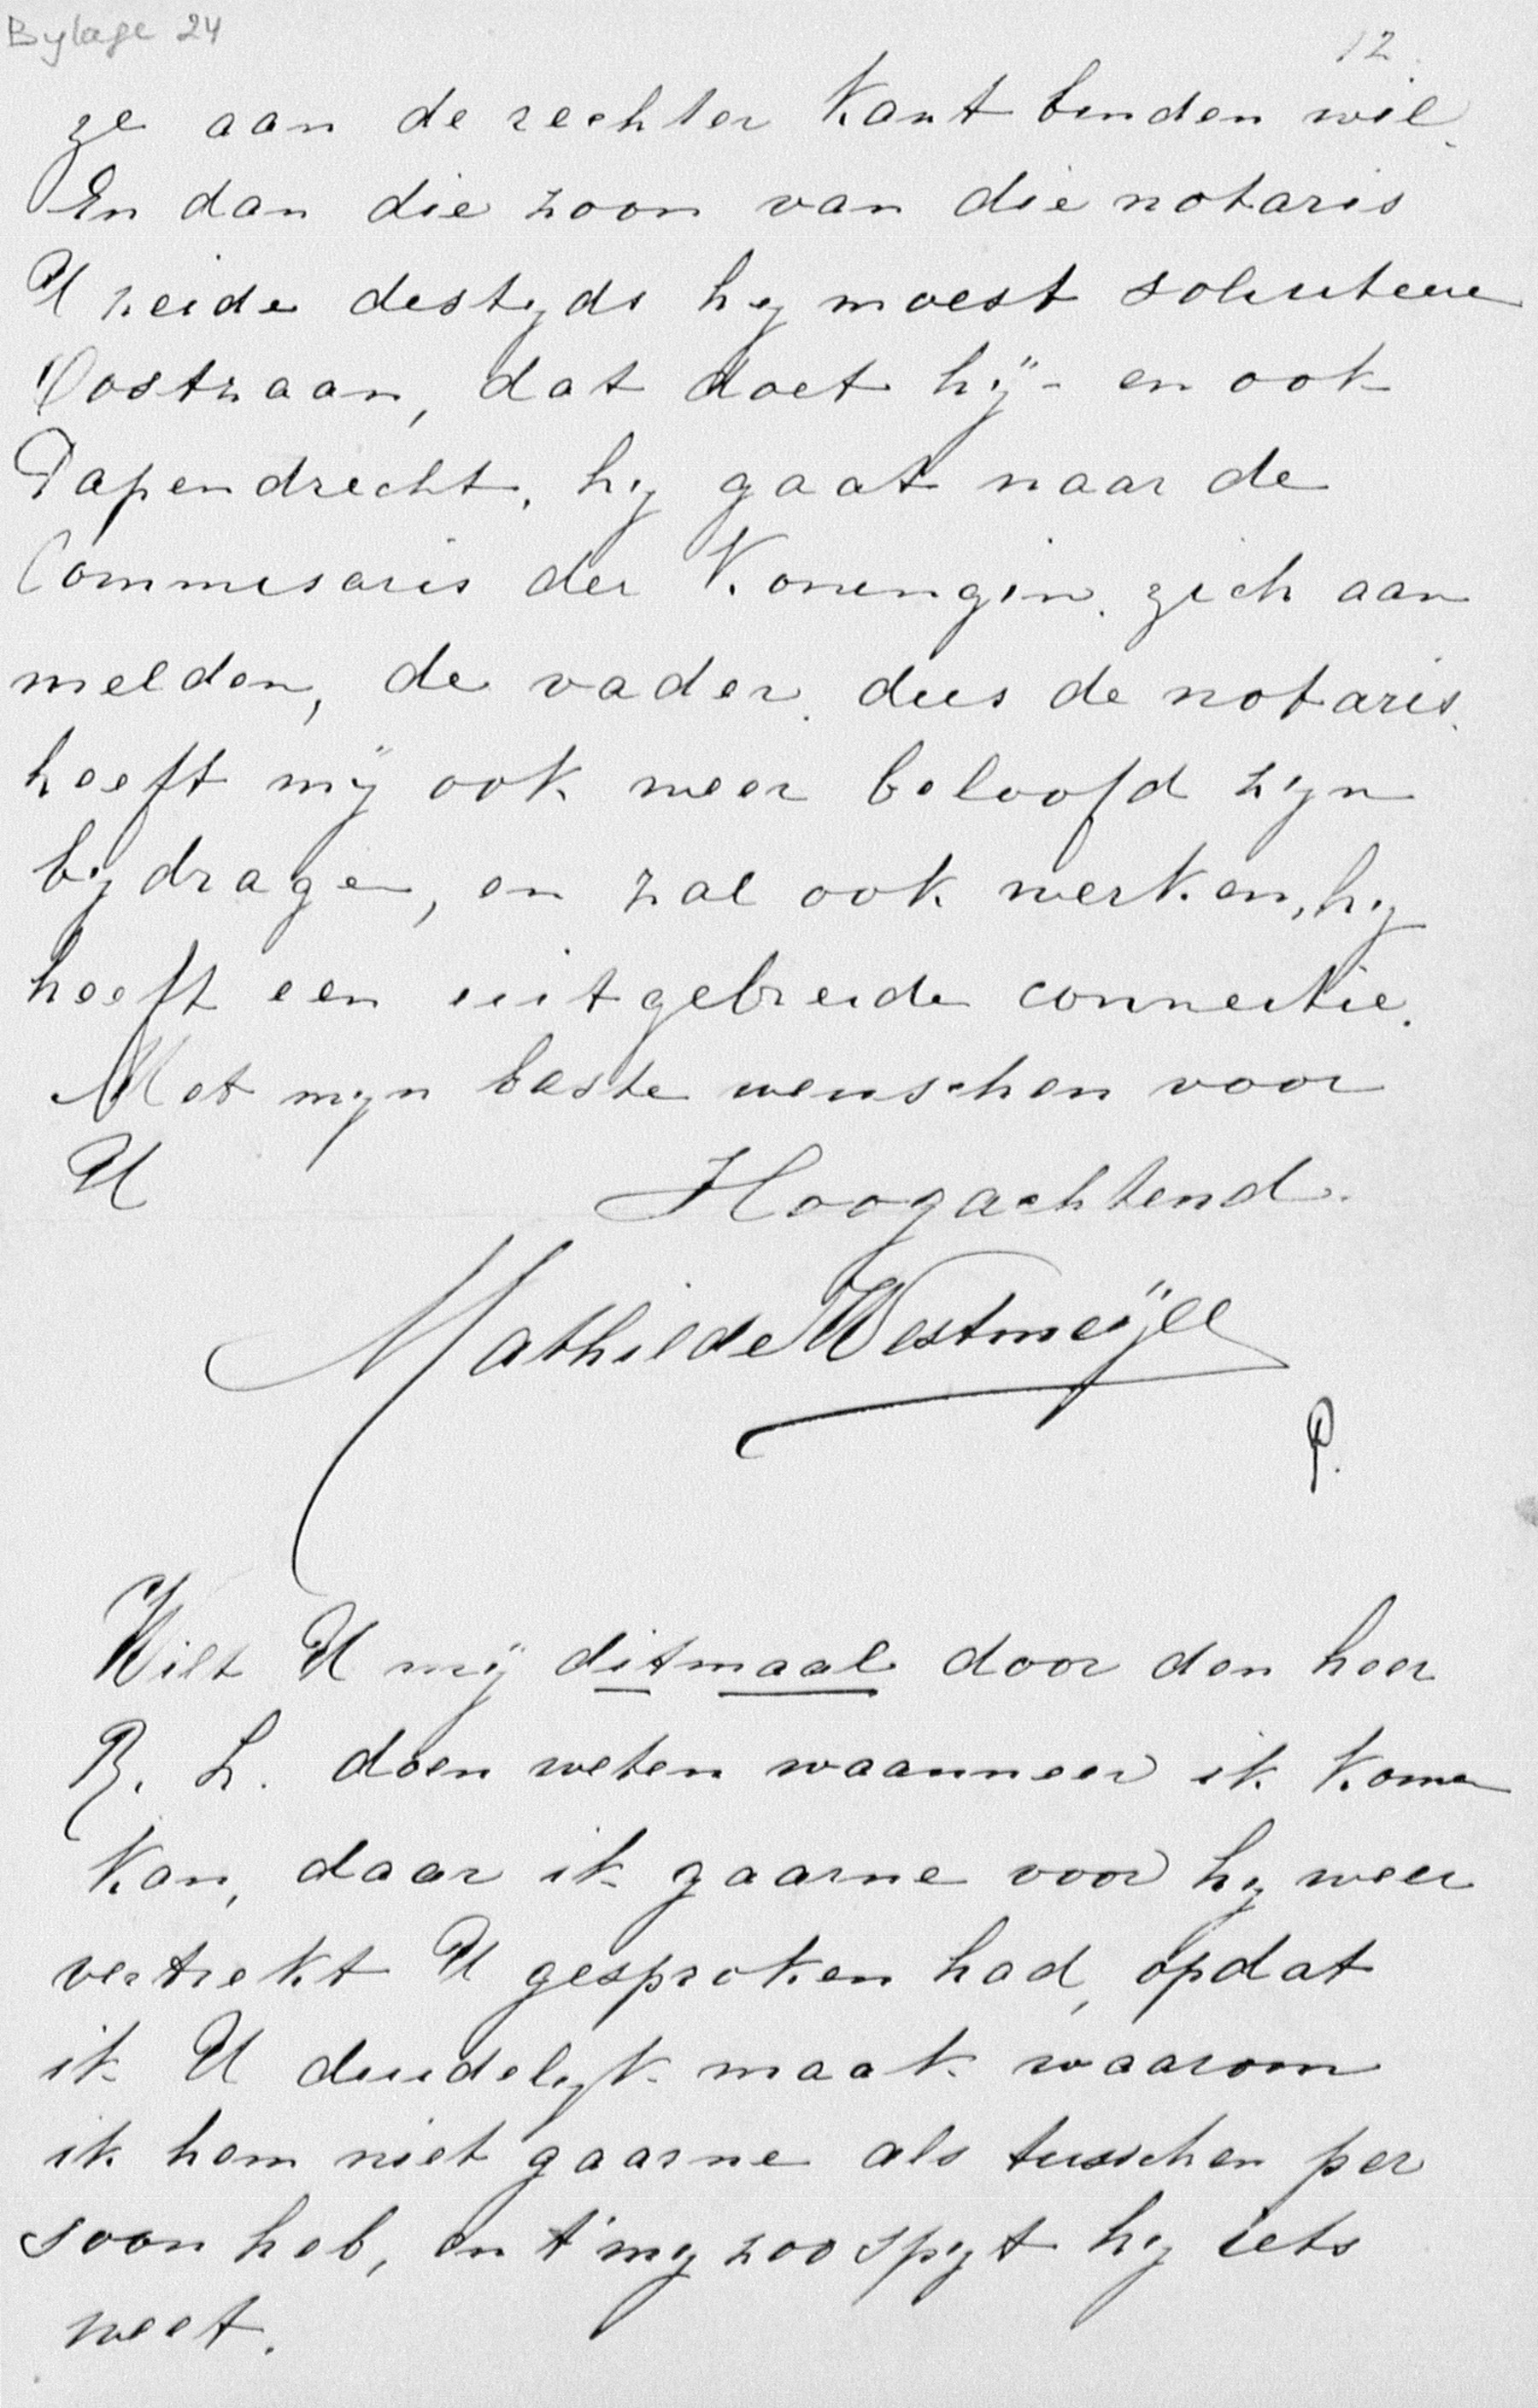 Bylage 24
12
ze aan de rechter Kant binden wil.
En dan die zoon van die notaris
U zeide destyds hy moest soliciteere
Oostzaan, dat doet hÿ - en ook
Papendrecht, hy gaat naar de
Commisaris der Koningin. zich aan
melden, de vader. dus de notaris.
heeft mÿ ook weer beloofd zyn
bydrage, en zal ook werken, hy
heeft een uitgebreide connectie.
Met myn beste wenschen voor
U Hoogachtend.
Mathilde Westmeÿer
P.
Wilt U mÿ ditmaal door den heer
R. L. doen weten waanneer ik Komen
Kan, daar ik gaarne voor hy weer
vertrekt U gesproken had, opdat
ik U duidelyk maak waarom
ik hem niet gaarne als tusschen per
soon heb, en t'my zoo spyt hy iets
weet.